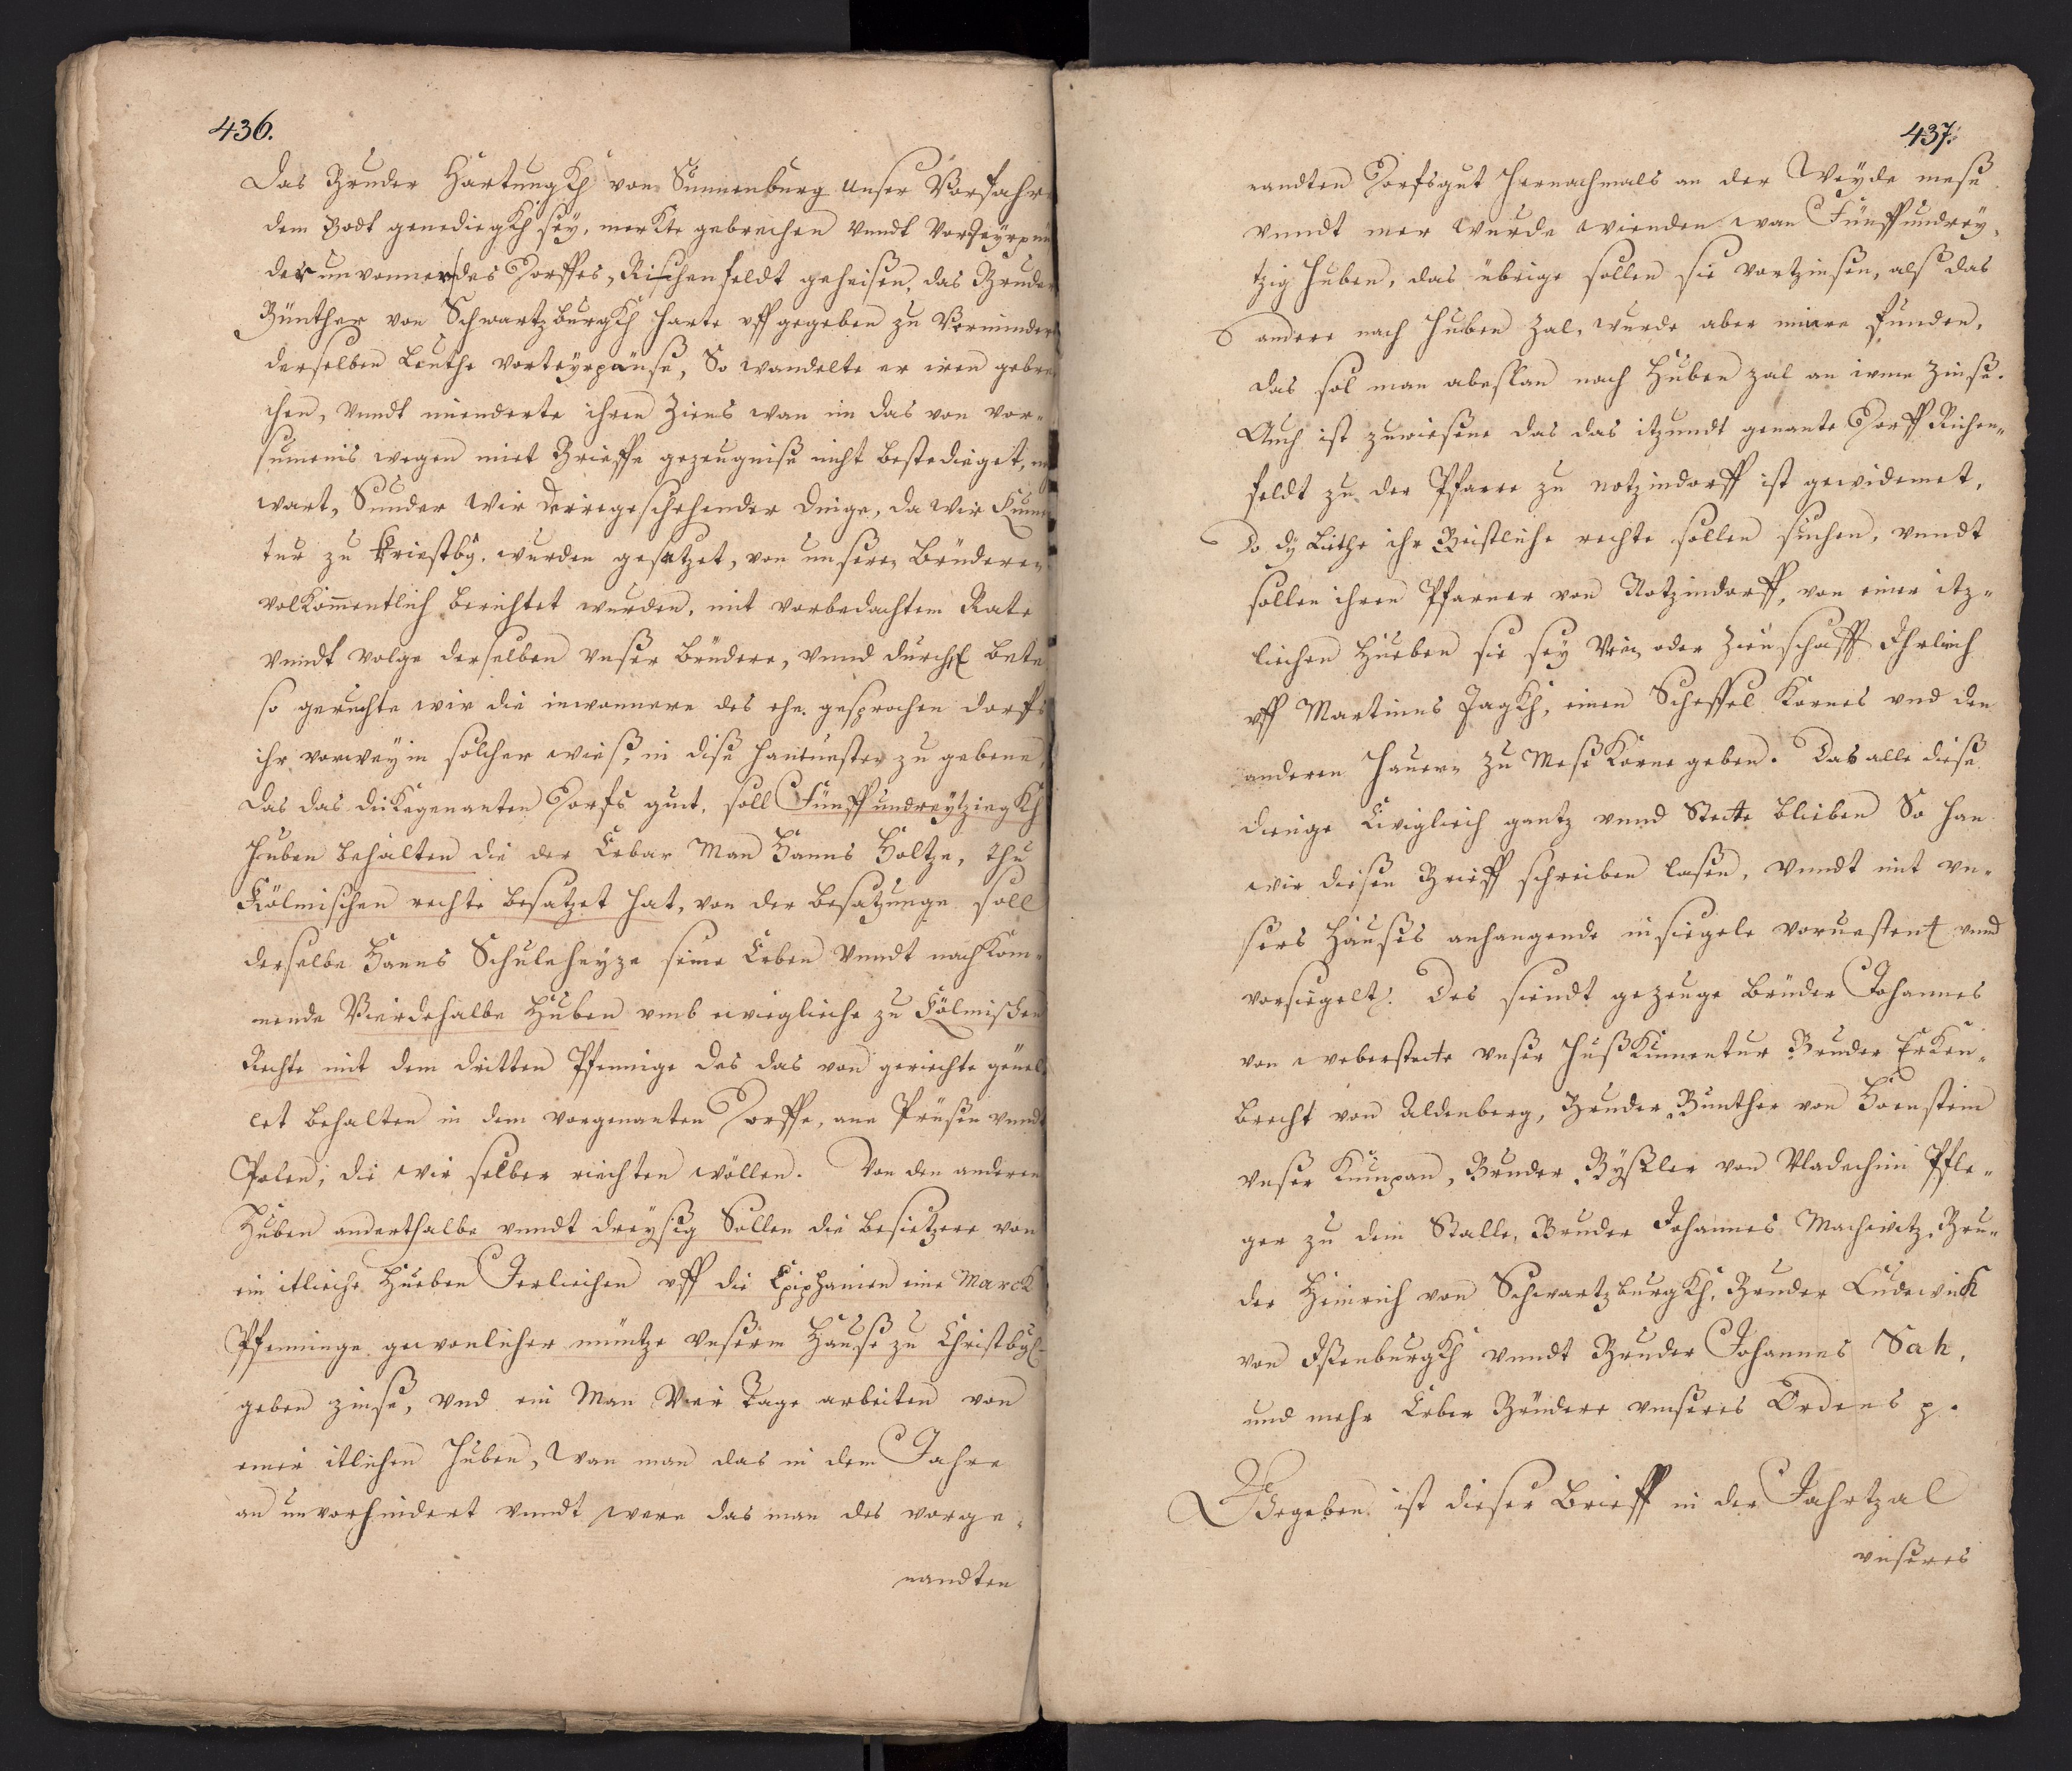 436.
Das Bruder Hartungkh von Sunnenburg unser Vorfahr
dem Godt genedigkh sey, merkte gebrechen vnndt
der innwonner des Dorffes, Rischenfeldt geheisen, das Bruder
Günther von Schwartzburgkh hatte vffgegeben zu
derselben Leuthe So wandelte er iren gebre
chen, vnndt minderte ihren Ziens wan im das von vor-
sumenis wegen miet Brieffe gezeugniße nicht bestediget,
wart, Sunder wir geschehender Dinge, da wir Kum
tur zu Kriestbg. wurden gesatzet, von unseren Brüderen
volkommentlich berichtet wurden, mit vorbedachtem Rate
vnndt volge derselben vnser Brüdere, vnnd durch bete
so geruchte wir die inwonnere des ehe. gesprochen dorfs
ihr in solcher wies, in dise hantueste zu gebene,
das das dickegenanten Dorfs gut, soll Fünffundreytziegkh
Huben behalten die der Erbar Man Hanns Holtze, thu
Kölmischen rechte besatzet hat, von der besatzunge soll
derselbe Hanns Schuleheyze seine Erben vnndt nachkom-
mende Vierdehalbe Huben vmb ewiegliche zu Kölmischen
Rechte mit dem dritten Pfennige des das von gerichte
let behalten in dem vorgenanten Dorffe, ane Prüsen vnndt
Polen, die wir selber riechten wöllen. Von den anderen
Huben anderthalbe vnndt dreysig Sollen die besietzere von
ein itliche Hueben Jerlichen vff die Epiphanien eine Marck
Pfenninge gewonlicher müntze vnserm Hause zu Christbgk
geben zinse, vnd ein Man Vier Tage arbeiten von
einer itlichen Huben, wan man das in dem Jahre
an unvorhindert vnndt were das man des vorge-
nandten
437.
nandten Dorfsgut hernachmals an der Weyde mese
vnndt mer wurde vienden wan Fünffundrey-
tzig Huben, das übrige sollen sie vortzinsen, also das
andere nach Huben zal, wurde aber minre funden,
das sol man abeslan nach Huben zal an irme Zinse.
Auch ist zuwiesene das das itzundt genante Dorff Richen-
feldt zu der Pfarre zu notzindorff ist gewidemet,
do dy Liethe ihr Geistliche rechte sollen suchen, vnndt
sollen ihren Pfarner von Notzindorff, von einer itz-
lichen Hueben sie sey Vrey oder Zienschafft Ihrlich
vff Martinus Tagkh, einen Scheffel Kornes vnd den
anderen Hauern zu Mese Korne geben. Das alle diese
dienge Ewiglich gantz vnnd Stette blieben So han
wir diesen Brieff schreiben lasen, vnndt mit vn-
sers Hauses anhangende insiegele voruestent vnnd
vorsiegelt. Des siendt gezeuge Brüder Johannes
von weberstette vnser Hußkumentur Bruder Erken-
brecht von Aldenberg, Bruder Gunther von Hoenstein
vnser Kumpan, Bruder Gyßeler von Vladechim Pfle-
ger zu dem Stalle, Bruder Johannes Machwitz, Bru-
der Heinrich von Schwartzburgkh, Bruder Ludewick
von Ißenburgkh vnndt Bruder Johannes Sah,
und mehr Erber Brüdere vnseres Ordens p.
Gegeben ist dieser Brieff in der Jahrtzal
vnseres